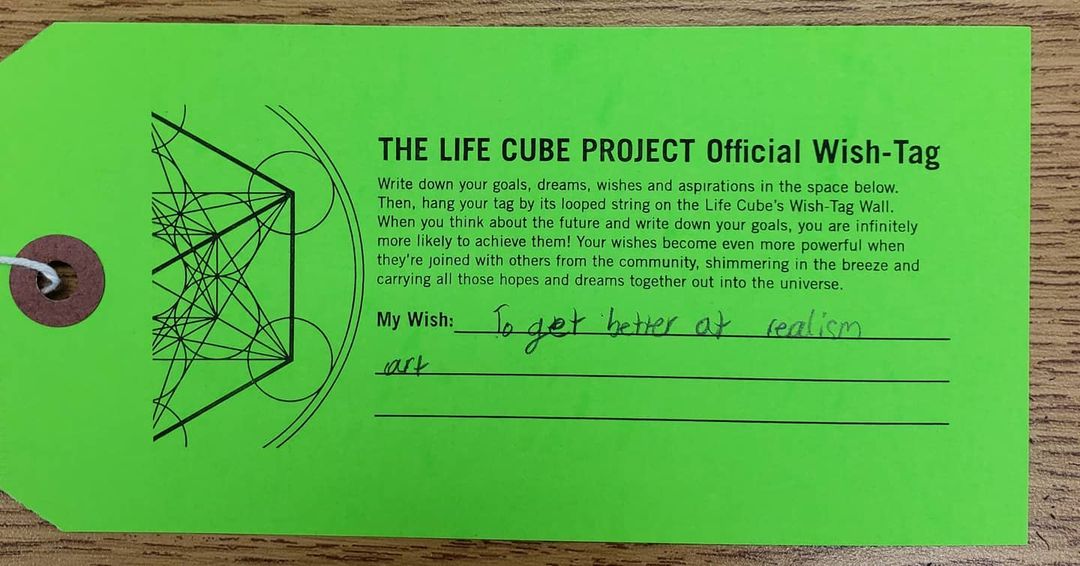 THE LIFE CUBE PROJECT Official Wish-Tag
Write down your goals, dreams, wishes and aspirations in the space below.
Then, hang your tag by its looped string on the Life Cube's Wish-Tag Wall.
When you think about the future and write down your goals, you are infinitely
more likely to achieve them! Your wishes become even more powerful when
they're joined with others from the community, shimmering in the breeze and
carrying all those hopes and dreams together out into the universe.
My Wish: To get better at realism
art